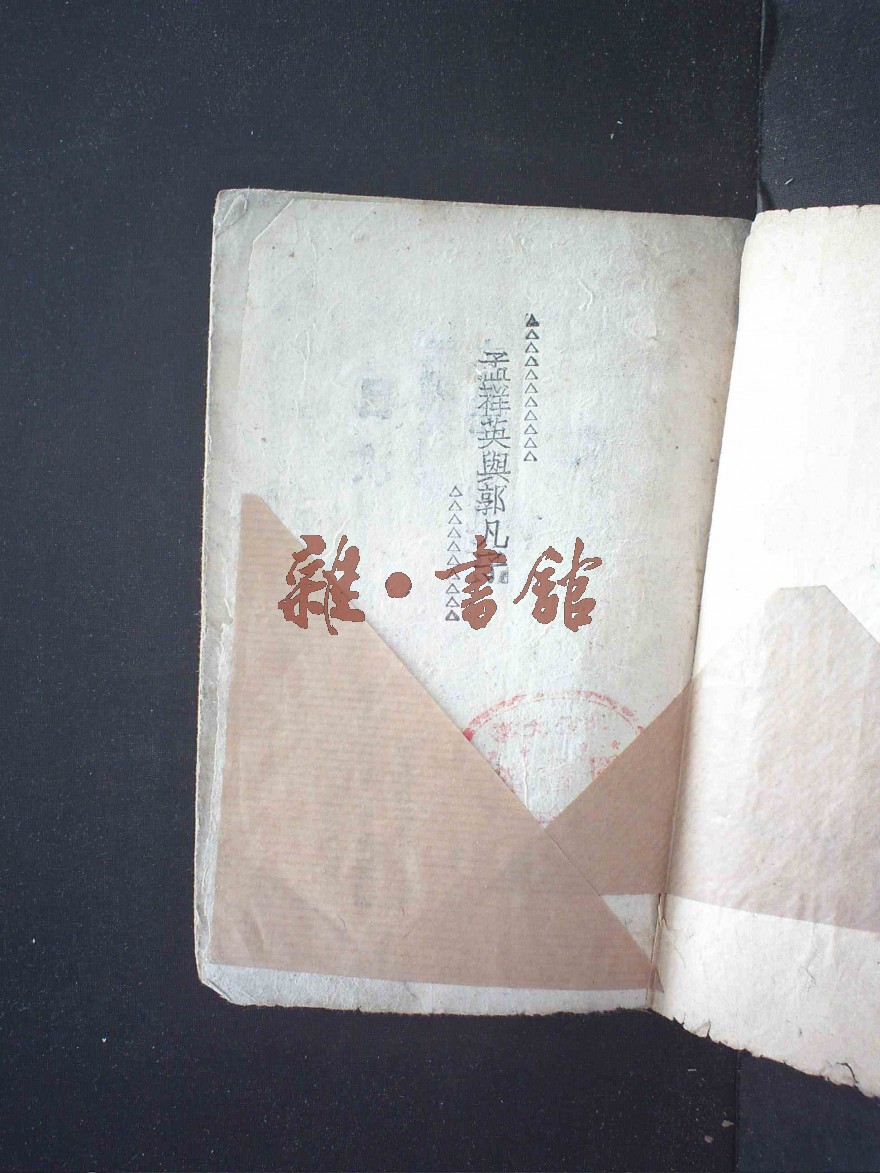 孟祥英與郭凡子
雜·書館